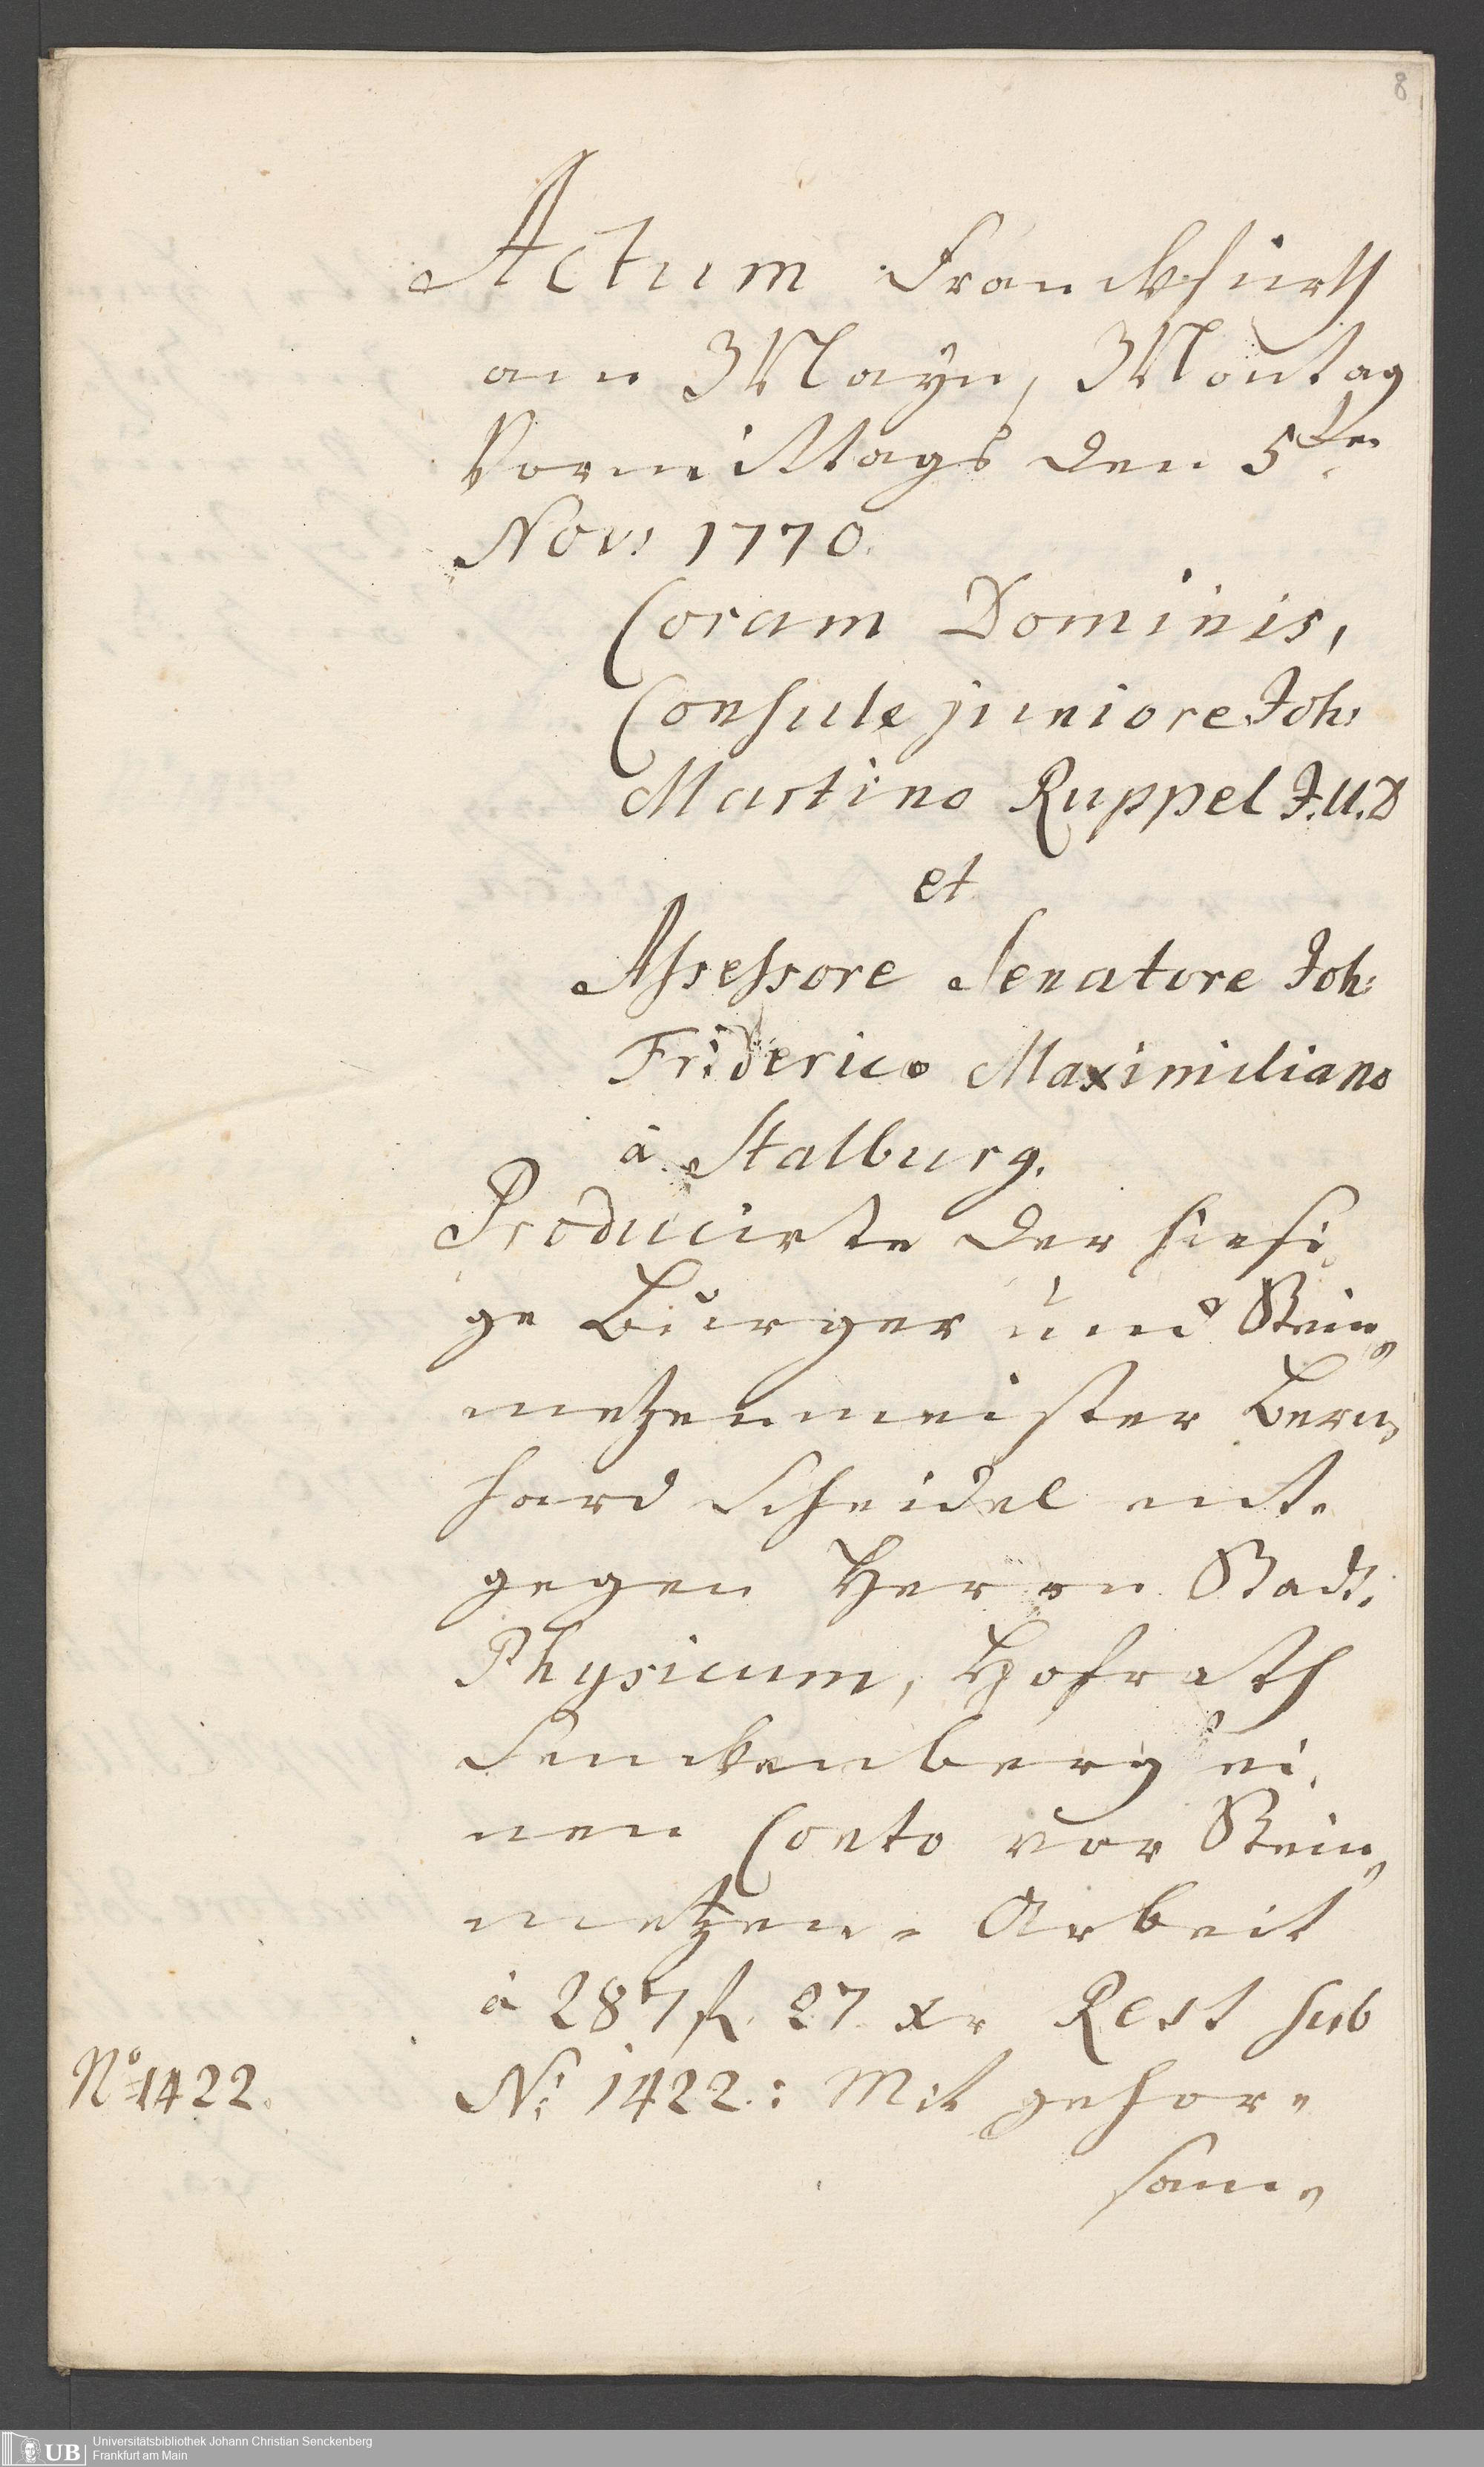 8
Actum Franckfurth
am Mayn, Montag
Vormittags den 5ten
Nov: 1770.
Coram Dominis,
Consule juniore Joh:
Martino Ruppel J.U.D
et
Assessore Senatore Joh:
Friderico Maximiliano
à Stalburg.
Producirte der hiesi„
ge Burger und Stein„
metzenmeister Bern„
hard Scheidel ent„
gegen Herrn Stadt„
Physicum, Hofrath
Senckenberg ei„
nen Conto vor Stein„
metzen-Arbeit
à 287 fl. 27 xr Rest sub
No. 1422.: Mit gehor„
No. 1422.
sam„
UB
Universitätsbibliothek Johann Christian Senckenberg
Frankfurt am Main